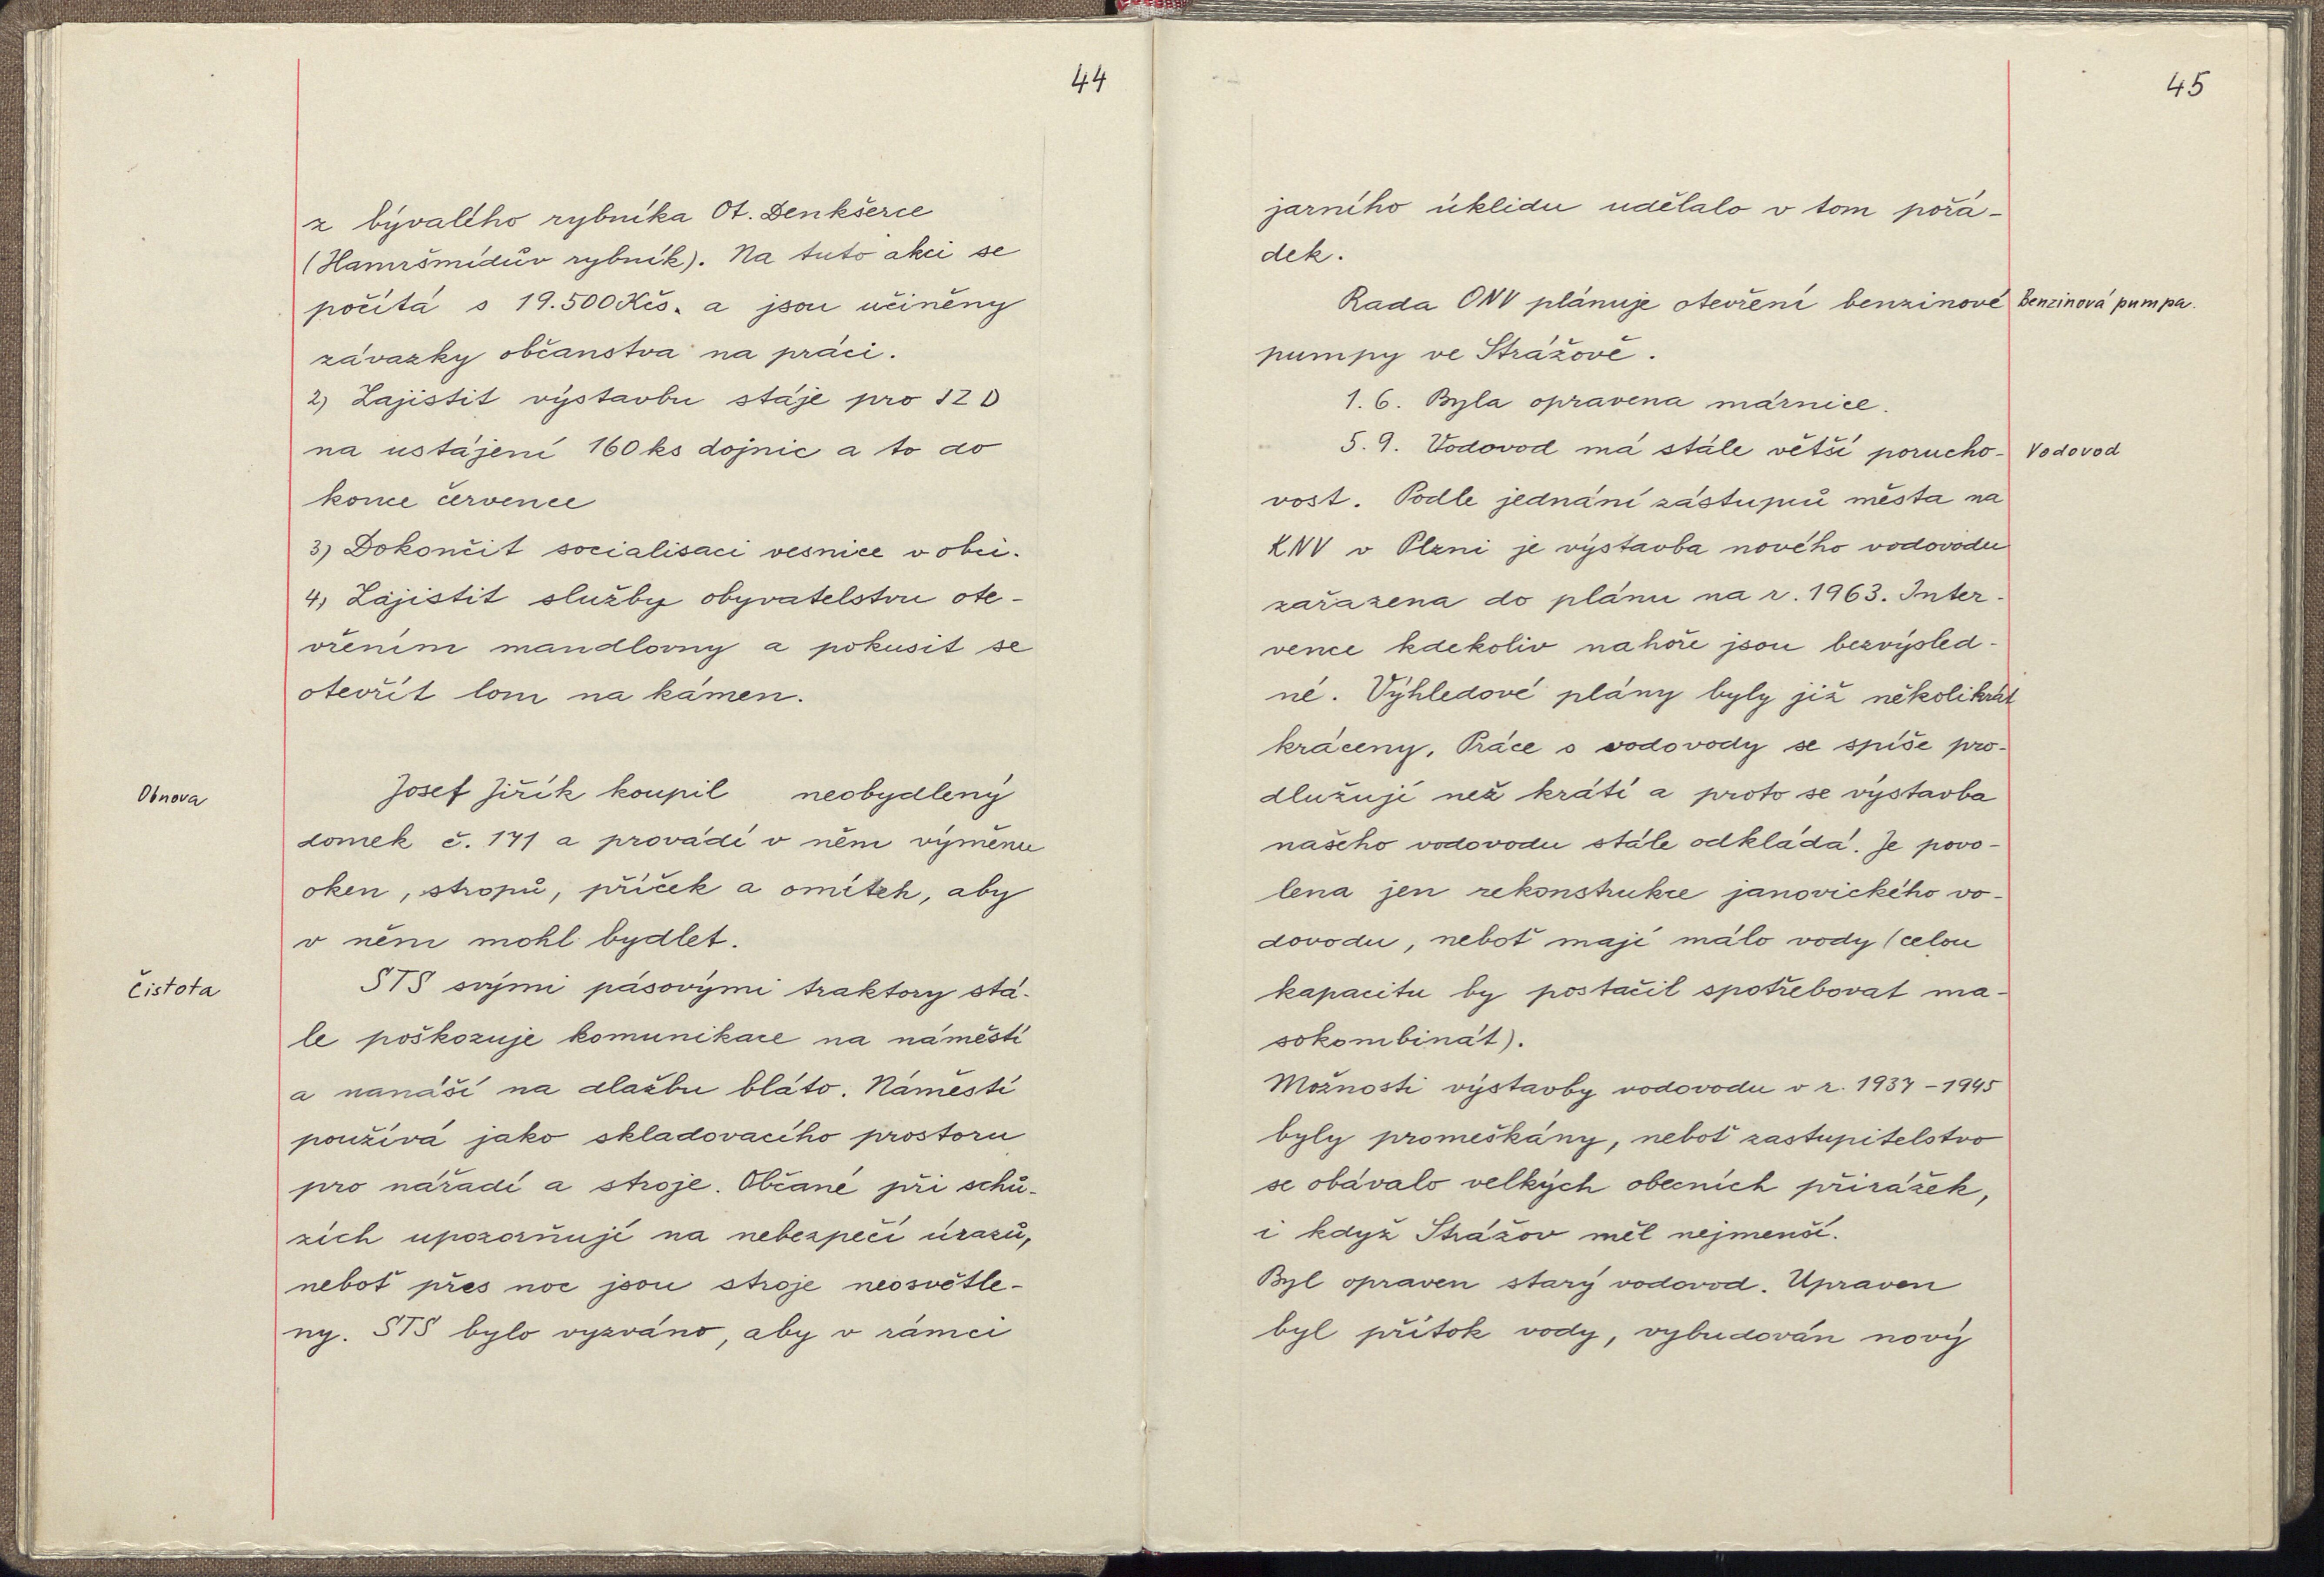 44
z bývalého rybníka Ot. Denkšerce
(Hamršmídův rybník). Na tuto akci se
počítá s 19.500 Kčs. a jsou učiněny
závazky občanstva na práci.
2) Zajistit výstavbu stáje pro JZD
na ustájení 160 ks dojnic a to do
konce července
3) Dokončit socialisaci vesnice v obci.
4) Zajistit služby obyvatelstvu ote-
vřením mandlovny a pokusit se
otevřít lom na kámen.
Obnova
Josef Jiřík koupil neobydlený
domek č. 171 a provádí v něm výměnu
oken, stropů, příček a omítek, aby
v něm mohl bydlet.
Čistota
STS svými pásovými traktory stá-
le poškozuje komunikace na náměstí
a nanáší na dlažbu bláto. Náměstí
používá jako skladovacího prostoru
pro nářadí a stroje. Občané při schů-
zích upozorňují na nebezpečí úrazů,
neboť přes noc jsou stroje neosvětle-
ny. STS bylo vyzváno, aby v rámci
45
jarního úklidu udělalo v tom pořá-
dek.
Rada ONV plánuje otevření benzinové
Benzinová pumpa.
pumpy ve Strážově.
1. 6. Byla opravena márnice.
5. 9. Vodovod má stále větší porucho-
Vodovod
vost. Podle jednání zástupců města na
KNV v Plzni je výstavba nového vodovodu
zařazena do plánu na r. 1963. Inter-
vence kdekoliv nahoře jsou bezvýsled-
né. Výhledové plány byly již několikrát
kráceny. Práce s vodovody se spíše pro-
dlužují než krátí a proto se výstavba
našeho vodovodu stále odkládá. Je povo-
lena jen rekonstrukce janovického vo-
dovodu, neboť mají málo vody (celou
kapacitu by postačil spotřebovat ma-
sokombinát).
Možnosti výstavby vodovodu v r. 1937 - 1945
byly promeškány, neboť zastupitelstvo
se obávalo velkých obecních přirážek,
i když Strážov měl nejmenší.
Byl opraven starý vodovod. Upraven
byl přítok vody, vybudován nový